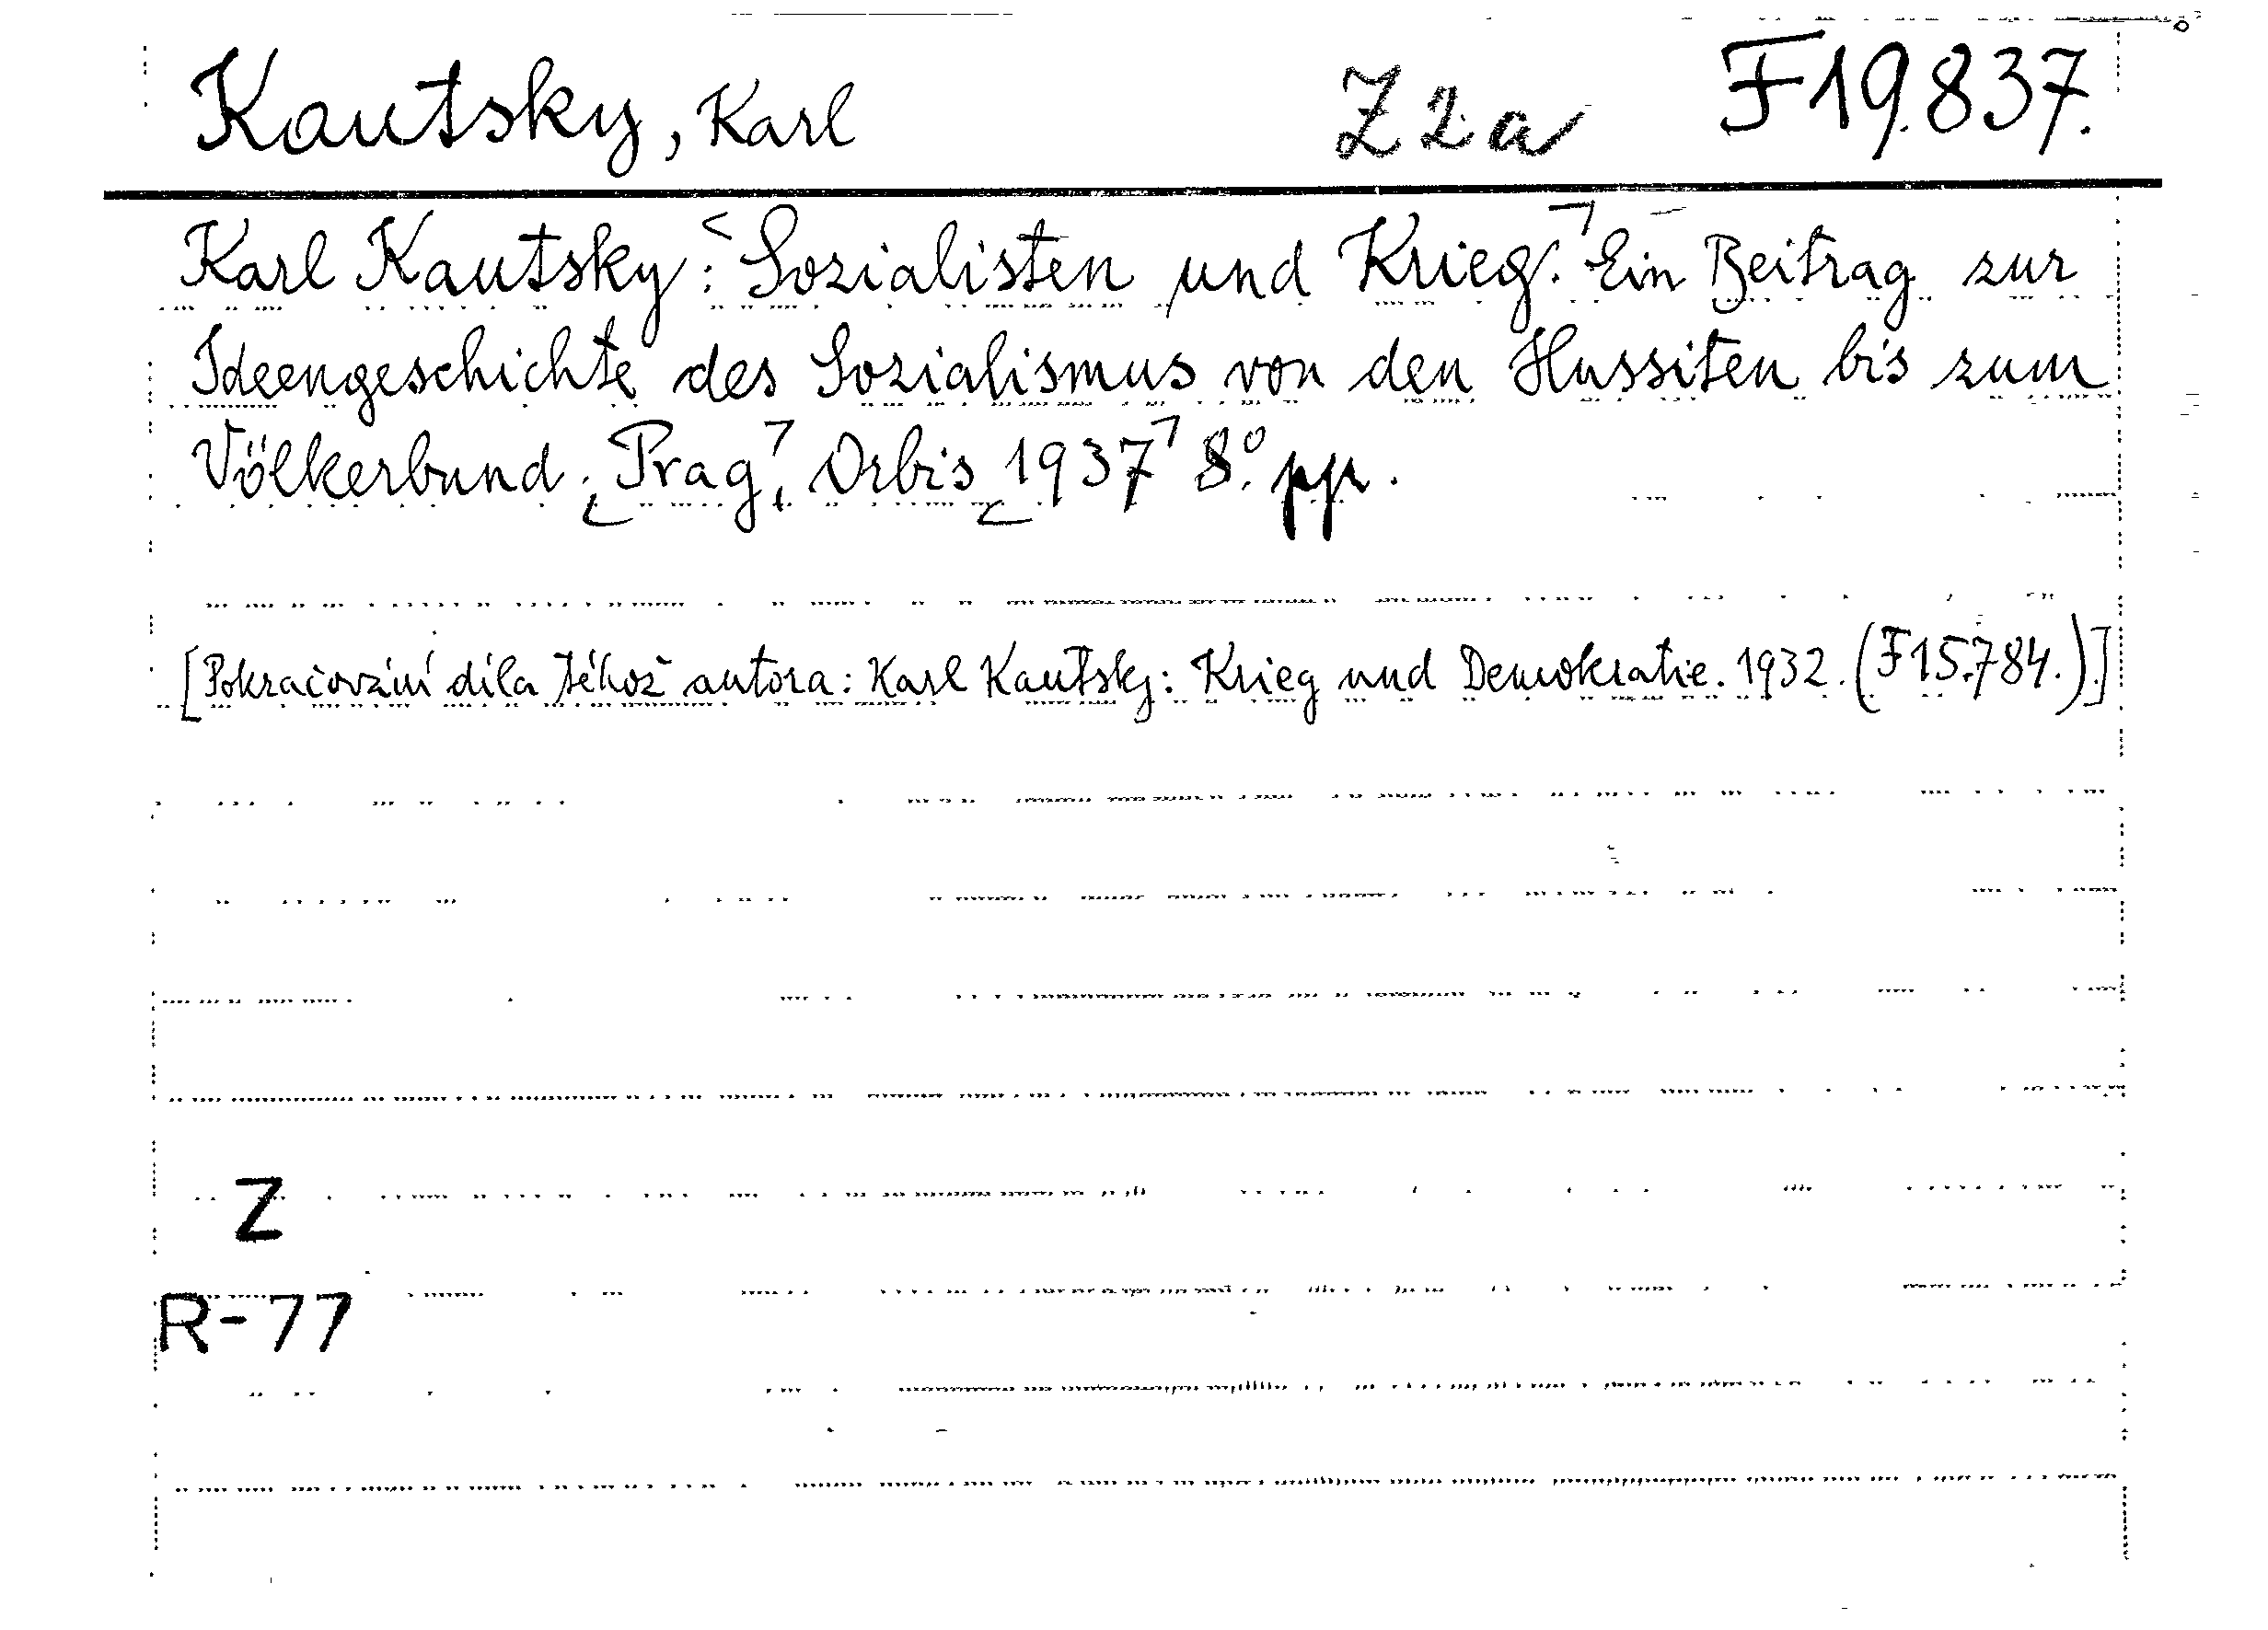 Kautsky, Karl Z 2a F 19.837.
Karl Kautsky: Sozialisten und Krieg. Ein Beitrag zur
Ideengeschichte des Sozialismus von den Hussiten bis zum
Völkerbund. Prag, Orbis 1937 8°. pp.
[Pokračování díla téhož autora: Karl Kautsky: Krieg und Demokratie. 1932. (F 15.784.)]
Z
R-77